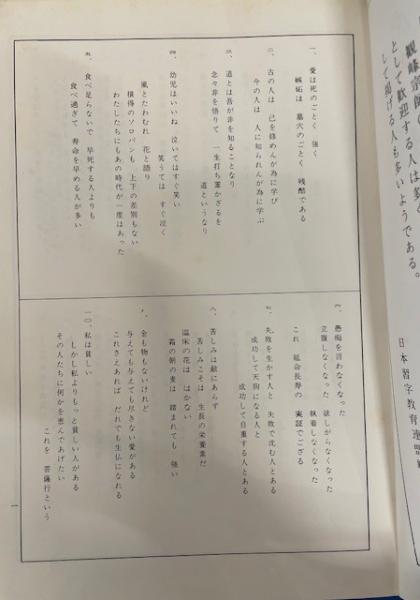 観峰宗師
として歓迎する人は多く
して掲げる人も多いようである。
日本習字教育連盟
一、愛は死のごとく 強く
嫉妬は 墓穴のごとく 残酷である
二、古の人は 己を修めんが為に学び
今の人は 人に知られんが為に学ぶ
三、道とは吾が非を知ることなり
念々非を悟りて 一生打ち重かざるを
道というなり
四、幼児はいいね 泣いてはすぐ笑い
笑うては すぐ泣く
風とたわむれ 花と語り
損得のソロバンも 上下の差別もない
わたしたちにもあの時代が一度はあった
五、食べ足らないで 早死する人よりも
食べ過ぎて 寿命を早める人が多い
六、愚痴を言わなくなった
立腹しなくなった 欲しがらなくなった
執着しなくなった
これ 延命長寿の 実証でござる
七、失敗を生かす人と 失敗で沈む人とある
成功して天狗になる人と
成功して自重する人とある
八、苦しみは敵にあらず
苦しみこそは 生長の栄養素だ
温床の花は はかない
霜の朝の麦は 踏まれても 強い
九、金も物もないけれど
与えても与えても尽きない愛がある
これさえあれば だれでも生仏になれる
一〇、私は貧しい
しかし私よりもっと貧しい人がある
その人たちに何かを恵んであげたい
これを 菩薩行という
一